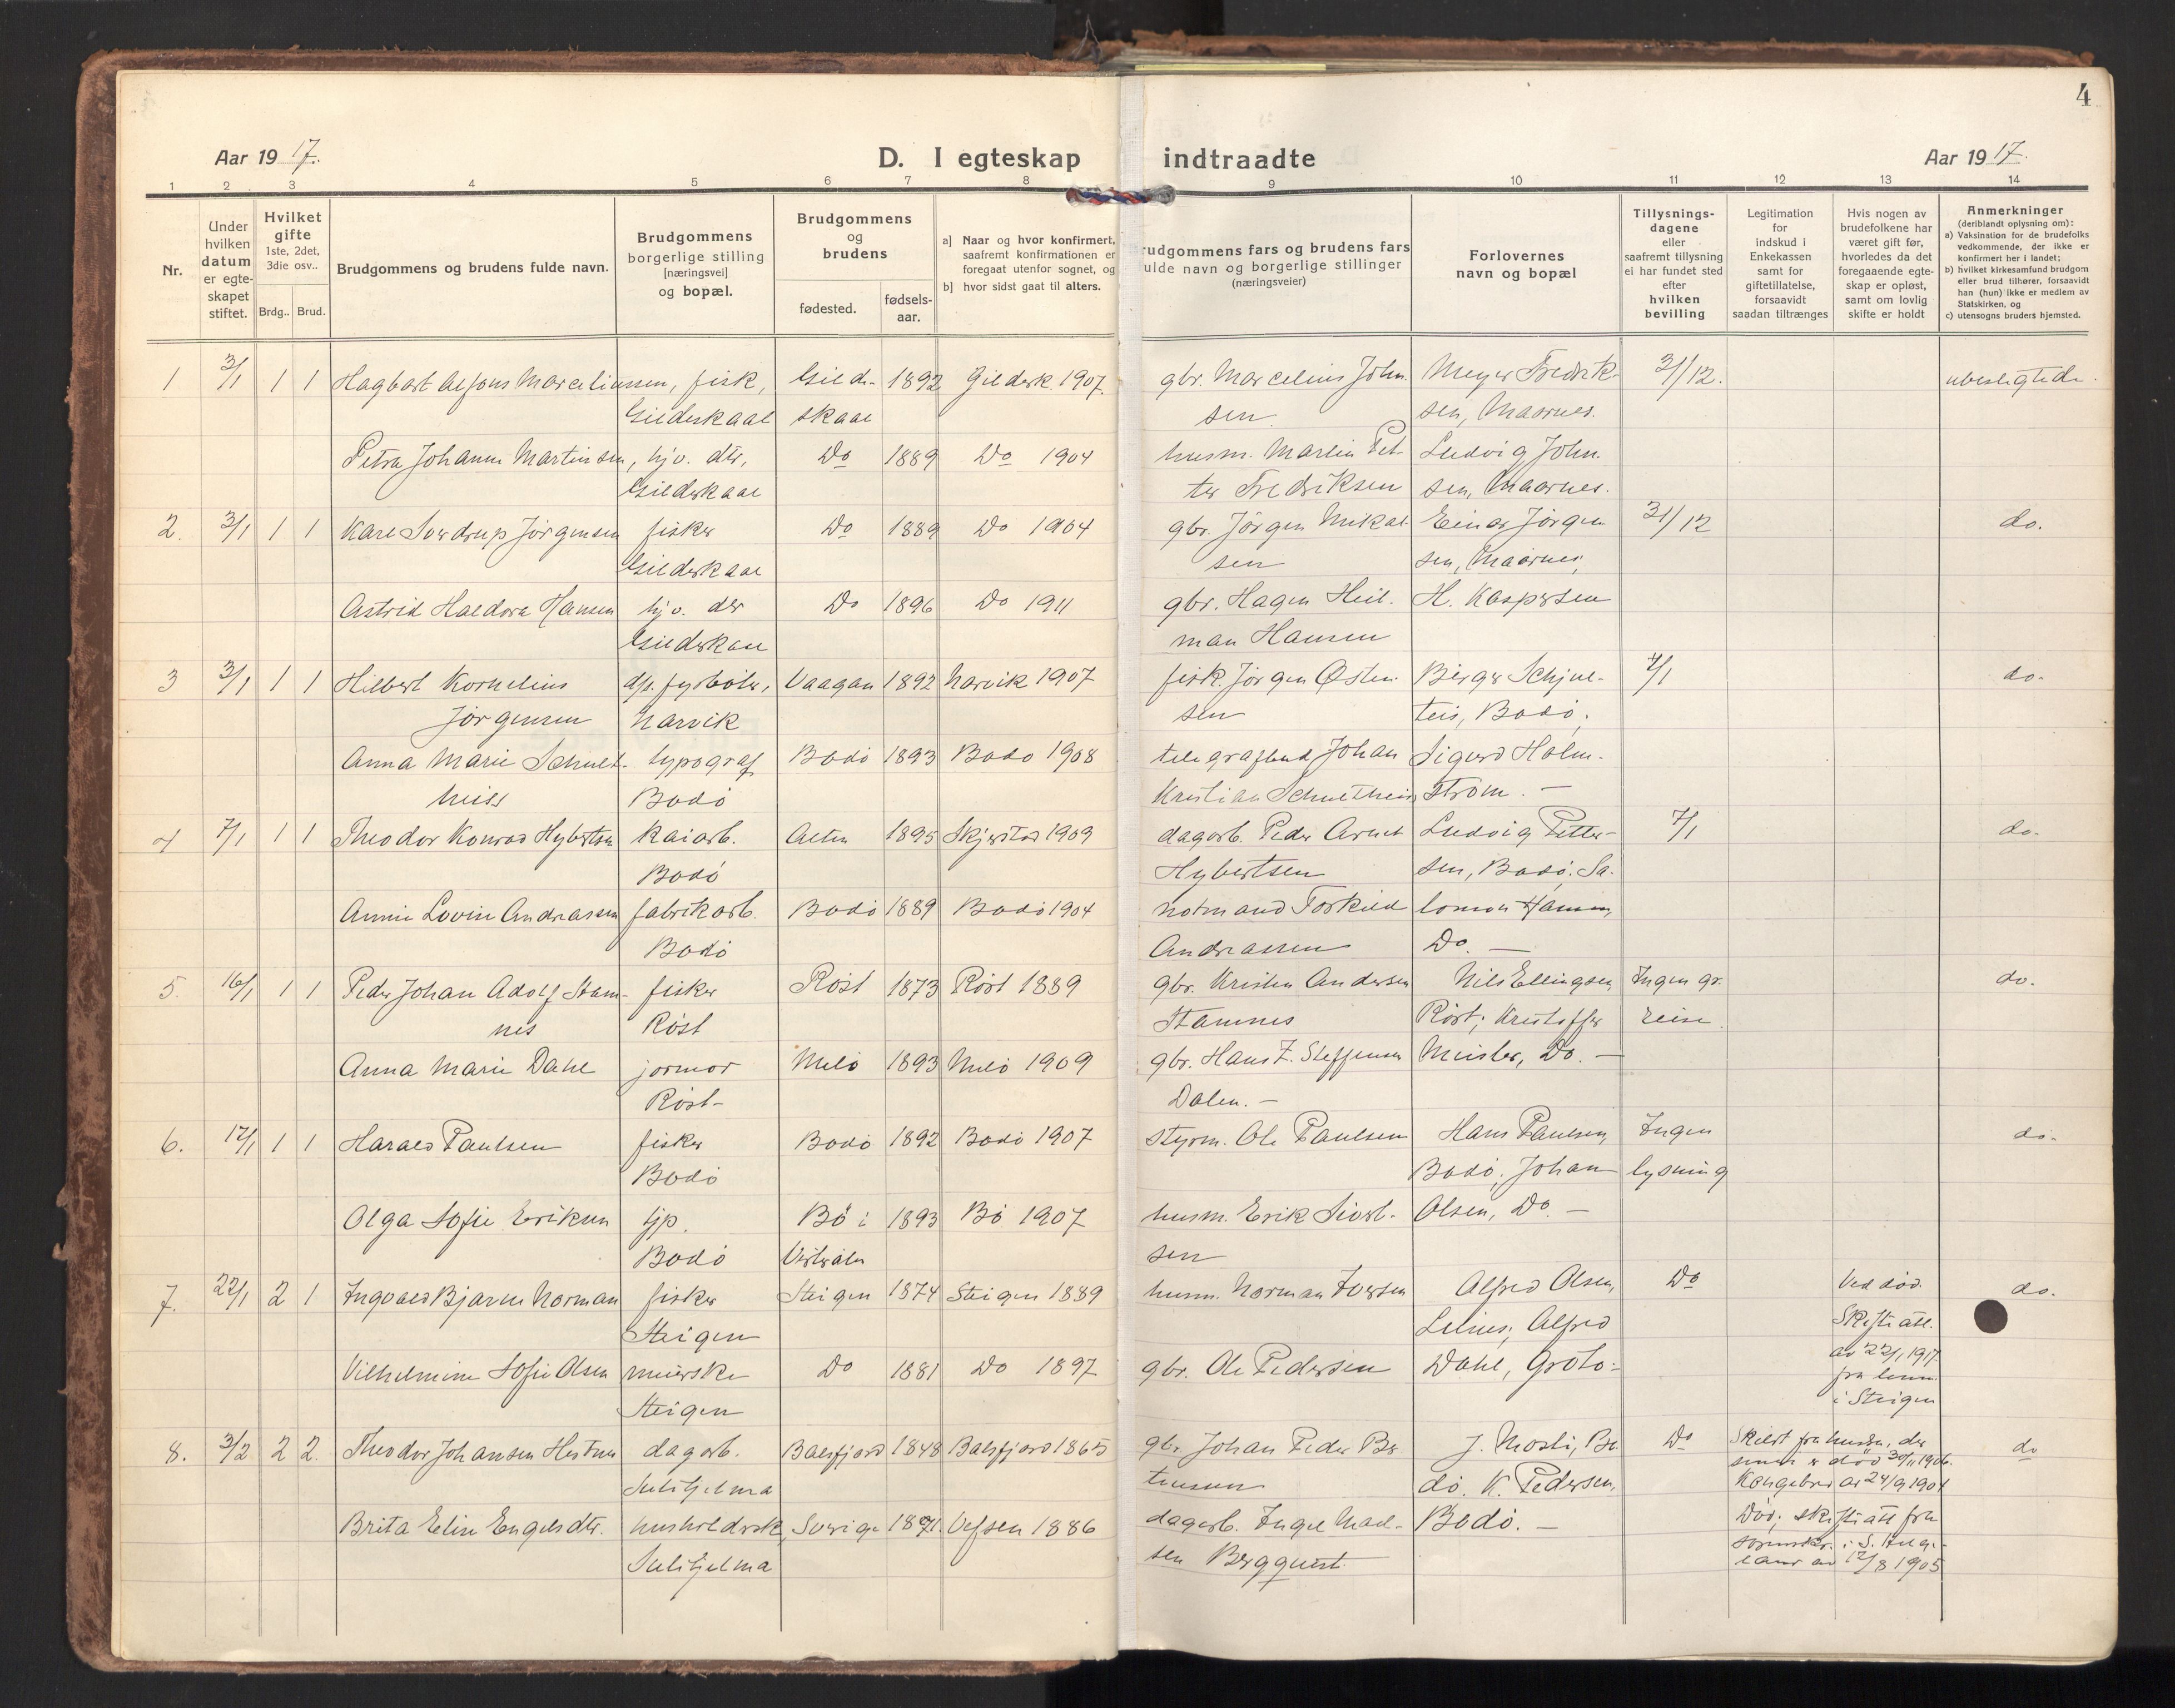 4
Aar 1917.
D. I egteskap indtraadte
Aar 1917.
1 2 3 4 5 6 7 8 9 10 11 12 13 14
Nr.
Under hvilken datum er egte-skapet stiftet.
Hvilket gifte 1ste, 2det, 3die osv..
Brdg.. Brud.
Brudgommens og brudens fulde navn.
Brudgommens borgerlige stilling [næringsvei] og bopæl.
Brudgommens og brudens
fødested. fødsels-aar.
a] Naar og hvor konfirmert, saafremt konfirmationen er foregaat utenfor sognet, og
b] hvor sidst gaat til alters.
rudgommens fars og brudens fars
ulde navn og borgerlige stillinger
(næringsveier)
Forlovernes navn og bopæl
Tillysnings-dagene eller saafremt tillysning ei har fundet sted efter hvilken bevilling
Legitimation for indskud i Enkekassen samt for giftetillatelse, forsaavidt saadan tiltrænges
Hvis nogen av brudefolkene har været gift før, hvorledes da det foregaaende egte-skap er opløst, samt om lovlig skifte er holdt
Anmerkninger (deriblandt oplysning om):
a) Vaksination for de brudefolks vedkommende, der ikke er konfirmert her i landet;
b) hvilket kirkesamfund brudgom eller brud tilhører, forsaavidt han (hun) ikke er medlem av Statskirken, og
c) utensogns bruders hjemsted.
1 3/1 1 1 Hagbart Alfons Marceliussen, fisk, Gilde- 1892 Gildesk. 1907. gbr. Marcelius John- Meyer Fredrik- 31/12. ubeslegtede.
Gildeskaal skaal sen. sen, Maarnes.
Petra Johanne Martinsen, hjv. dtr, Do 1889 Do 1904 husm. Martin Pet- Ludvig John-
Gildeskaal ter Fredriksen sen, Maarnes.
2. 3/1 1 1 Karl Sverdrup Jørgensen fisker Do 1889 Do 1904 gbr. Jørgen Mikal- Einar Jørgen 31/12 do.
Gildeskaal sen sen, Maarnes,
Astrid Haldora Hansen hjv. dtr Do 1896 Do 1911 gbr. Hagen Heil- H. Kaspersen
Gildeskaal man Hansen
3 3/1 1 1 Hilbert Kornelius Vaagan 1892 Narvik 1907 fisk. Jørgen Østen- Birger Schjul- 7/1 do.
Jørgensen Narvik sen teis, Bodø,
Anna Marie Schult- typograf Bodø 1893 Bodø 1908 telegrafbud Johan Sigurd Holm-
heiss Bodø Kristian Schultheiss strøm. -
4 7/1 1 1 Theodor Konrad Hybertsen kaiarb. Alten 1895 Skjerstad 1909 dagarb. Peder Arnt Ludvig Petter- 7/1 do.
Bodø Hybertsen sen, Bodø. Sa-
Annie Lovise Andreassen fabrikarb. Bodø 1889 Bodø 1904 notmand Torkild lomon Hansen,
Bodø Andreassen Do. -
5. 16/1 1 1 Peder Johan Adolf Stam- fisker Røst 1873 Røst 1889 gbr. Kristen Andersen Nils Ellingsen Ingen gr. do.
nes Røst Stamnes Røst; Kristoffer reise
Anna Marie Dahl jormor Melø 1893 Melø 1909 gbr. Hans Z. Steffensen Meisler, Do. -
Røst- Dalen. -
6. 17/1 1 1 Harald Paulsen fisker Bodø 1892 Bodø 1907 styrm. Ole Paulsen Hans Paulsen, Ingen do.
Bodø Bodø, Johan lysning
Olga Sofie Eriksen tjp. Bø i 1893 Bø 1907 husm. Erik Sivert- Olsen, Do. -
Bodø Vesteraalen sen
7. 22/1 2 1 Ingvald Bjarne Norman fisker Steigen 1874 Steigen 1889 husm. Norman Iversen Alfred Olsen, Do Ved død. do.
Steigen Leines; Alfred Skifteatt.
Vilhelmine Sofie Olsen meierske Do 1881 Do 1897 gbr. Ole Pedersen Dahl, Grøtø- av 22/1 1917
Steigen fra lensm. i Steigen
8. 3/2 2 2. Theodor Johansen Hestnes dagarb. Balsfjord 1848 Balsfjord 1865 gbr. Johan Peder Be- J. Mosti, Bo- Do Skilt fra hustru, der do
Sulitjelma dø. K. Pedersen, senere er død 30/11 1906. Kongebrev av 24/9 1904
Brita Elise Engelsdtr. husholdersk, Sverige 1871. Vefsen 1886 dagarb. Engel Mad- Bodø. - Død; skifteatt fra
Sulitjelma sen Bergquist. sorenskr. i S. Helge-
land av 12/8 1905